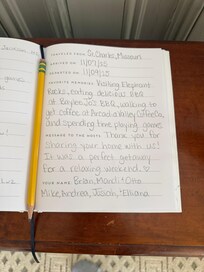 TRAVELED FROM St. Charles, Missouri
ARRIVED ON 11/07/25
DEPARTED ON 11/09/25
FAVORITE MEMORIES Visiting Elephant
Rocks, eating delicious BBQ
at Baylee Jo's BBQ, walking to
get coffee at Arcadia Valley Coffee Co,
and spending time playing games.
MESSAGE TO THE HOSTS Thank you for
sharing your home with us!
It was a perfect getaway
for a relaxing weekend. ♡
YOUR NAME Brian, Mandi, Otto
Mike, Andrea, Josiah, + Elliana